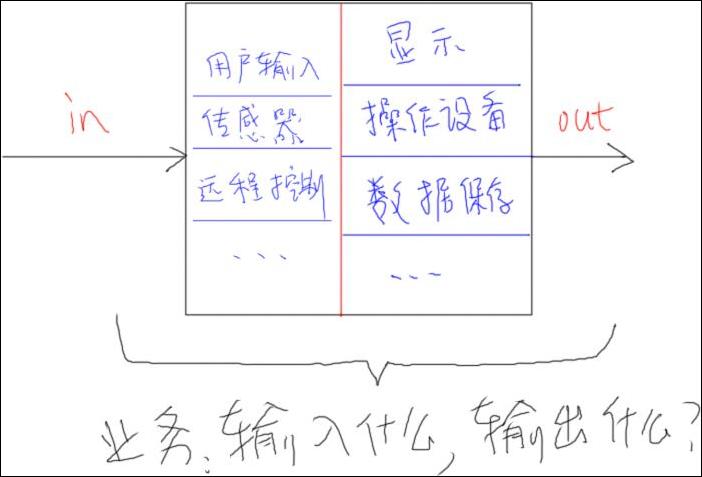 in
用户输入
传感器
远程控制
...
显示
操作设备
数据保存
...
out
业务:输入什么,输出什么?